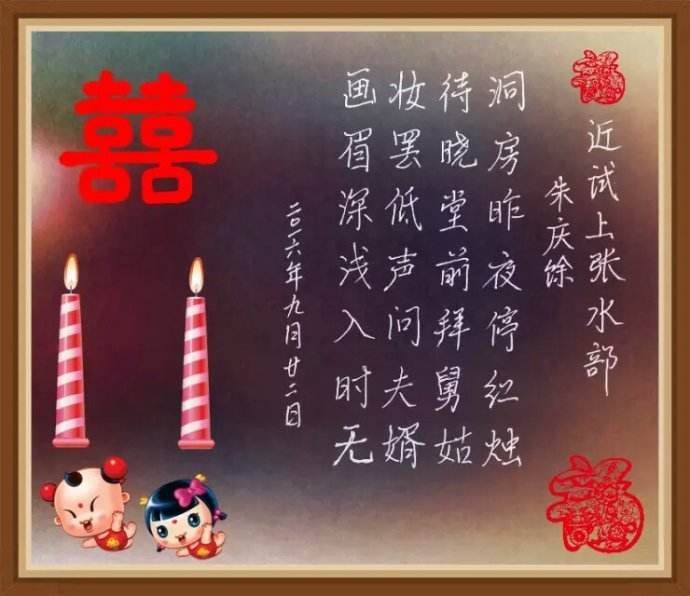 近试上张水部
朱庆馀
洞房昨夜停红烛
待晓堂前拜舅姑
妆罢低声问夫婿
画眉深浅入时无
二〇一六年九月廿二日
囍
福
福